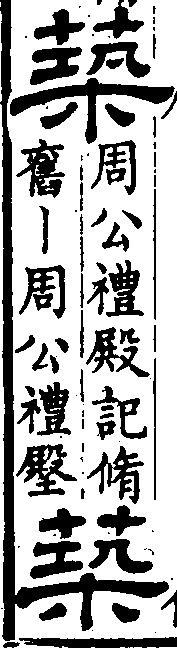 築
周公禮殿記脩
舊丨周公禮壂
築